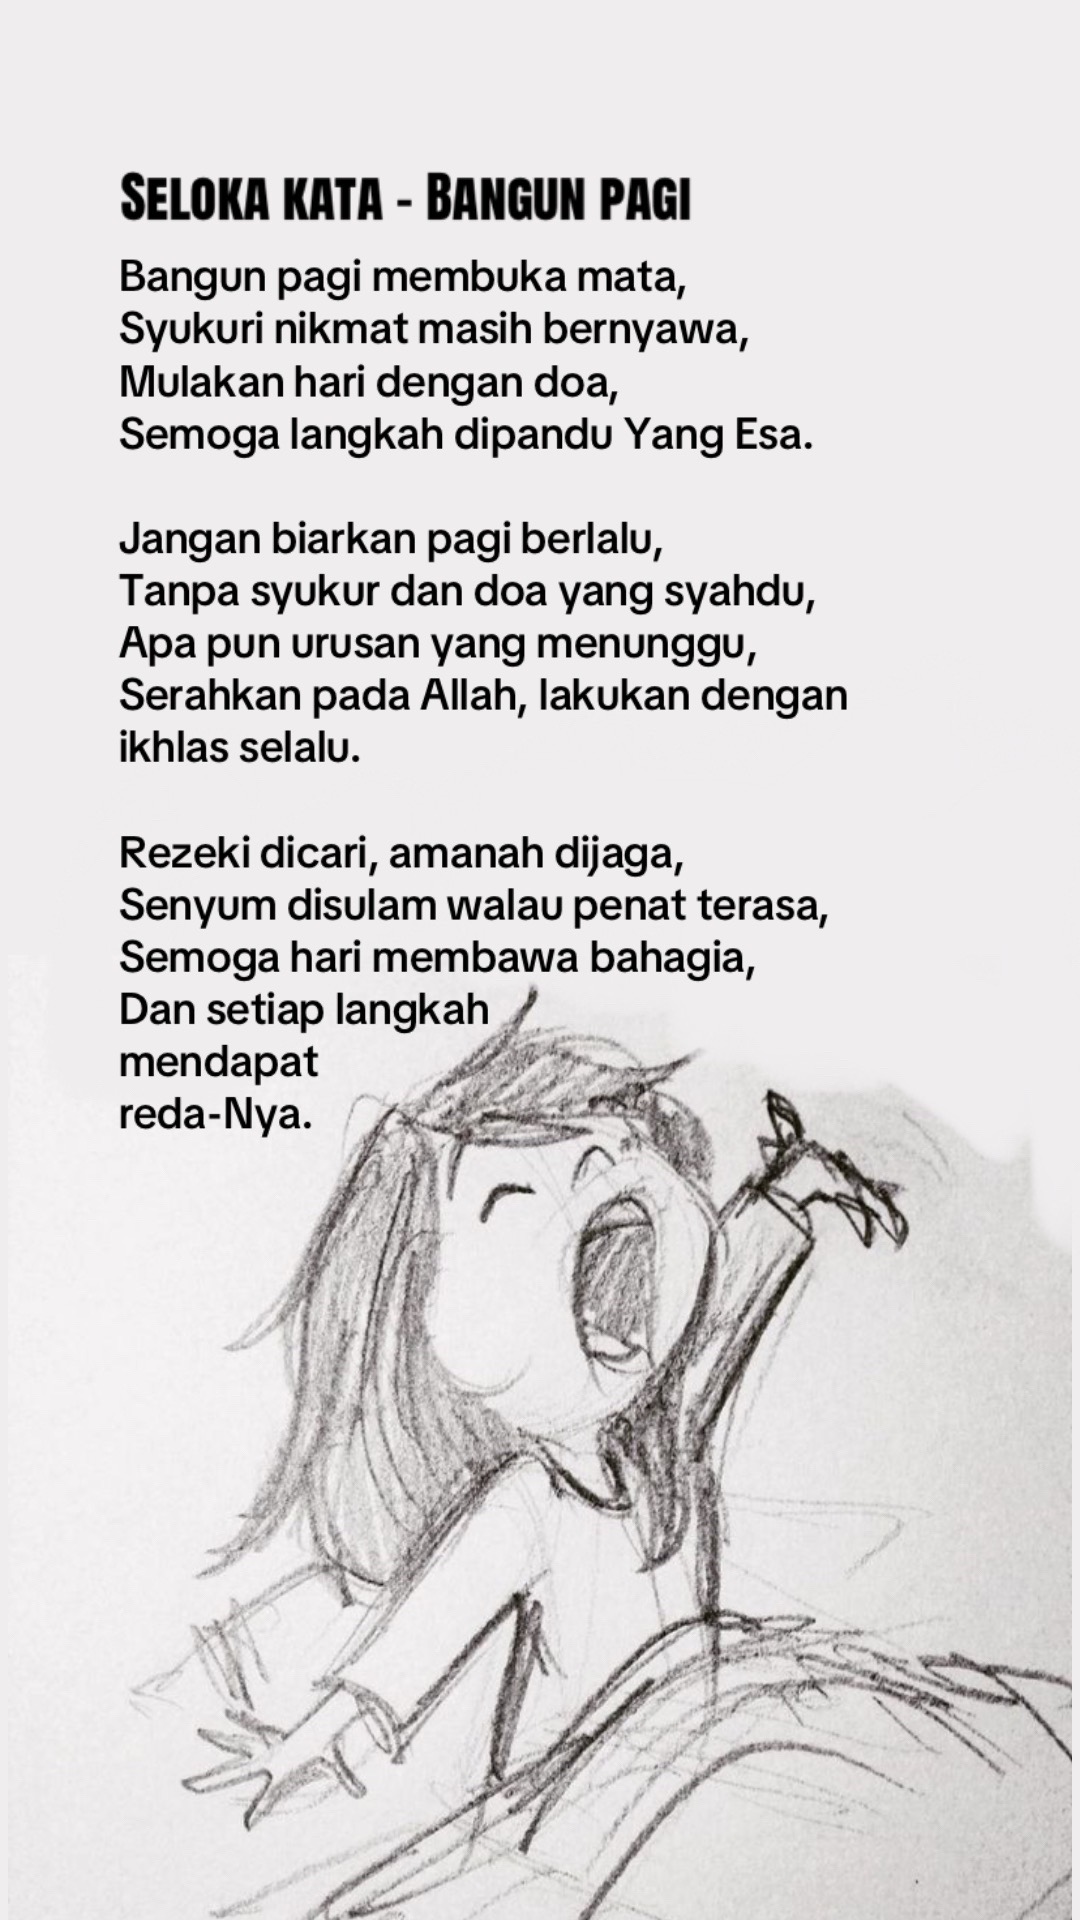 Seloka kata - Bangun pagi
Bangun pagi membuka mata,
Syukuri nikmat masih bernyawa,
Mulakan hari dengan doa,
Semoga langkah dipandu Yang Esa.
Jangan biarkan pagi berlalu,
Tanpa syukur dan doa yang syahdu,
Apa pun urusan yang menunggu,
Serahkan pada Allah, lakukan dengan
ikhlas selalu.
Rezeki dicari, amanah dijaga,
Senyum disulam walau penat terasa,
Semoga hari membawa bahagia,
Dan setiap langkah
mendapat
reda-Nya.